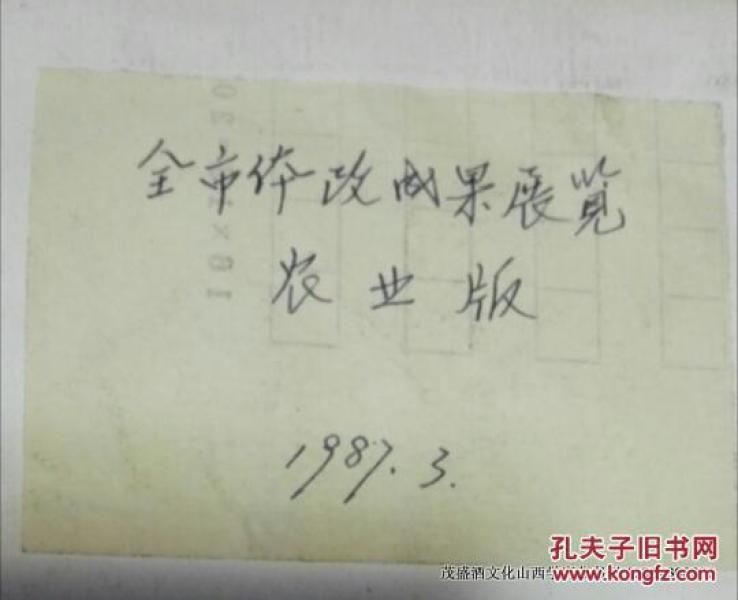 全市体改成果展览
农业版
1987.3.
孔夫子旧书网
www.kongfz.com
茂盛酒文化山西